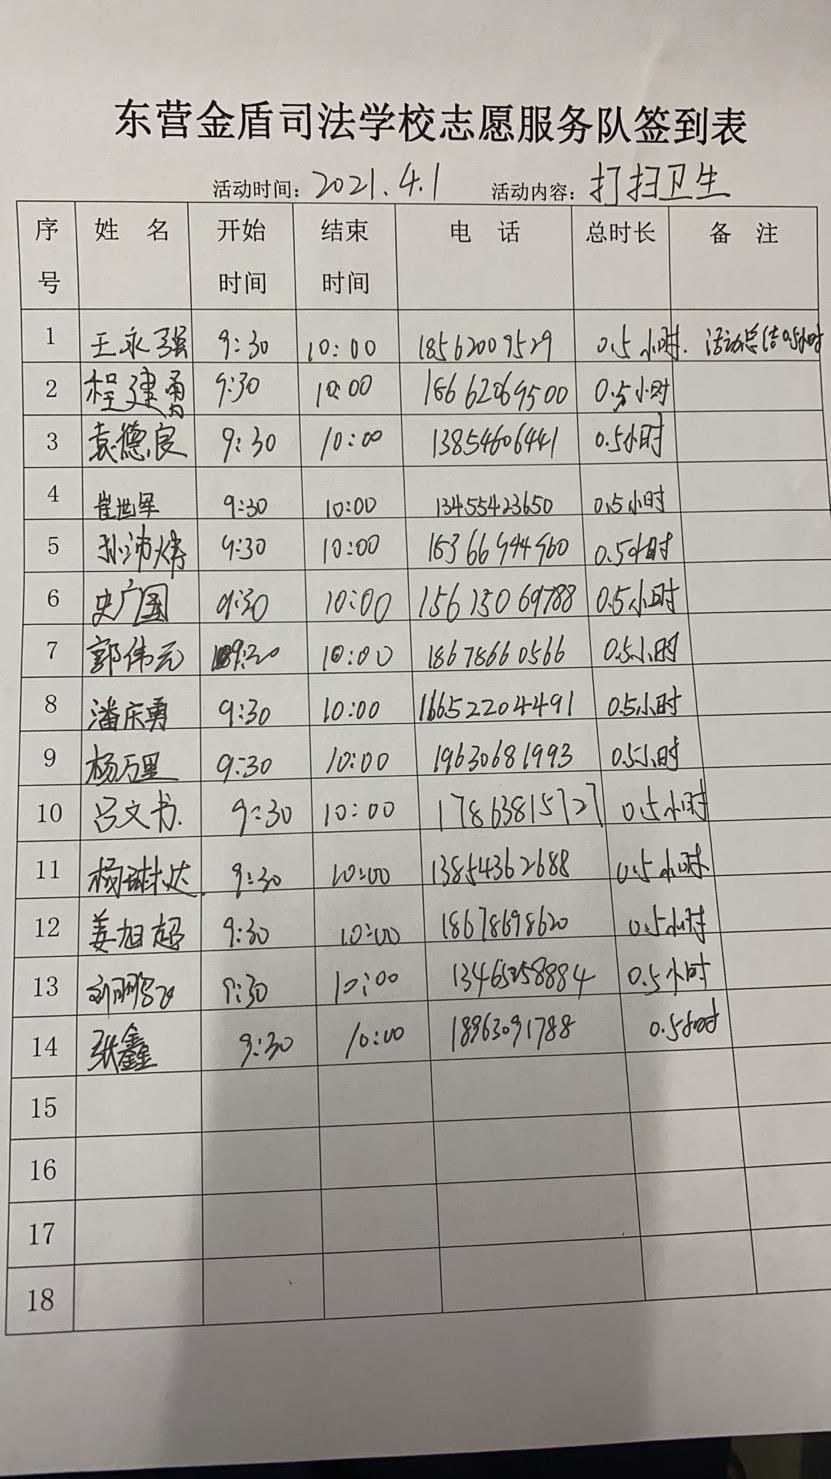 东营金盾司法学校志愿服务队签到表
活动时间: 2021.4.1 活动内容: 打扫卫生
序号 姓 名 开始时间 结束时间 电 话 总时长 备 注
1 王永强 9:30 10:00 18562009529 0.5小时. 活动总结0.5小时
2 程建勇 9:30 10:00 18662069500 0.5小时
3 袁德良 9:30 10:00 13854606441 0.5小时
4 崔世军 9:30 10:00 13455423650 0.5小时
5 孙沛 9:30 10:00 0.5小时
6 史广国 9:30 10:00 15615069788 0.5小时
7 郭伟元 10:00 18678660566 0.5小时
8 潘庆勇 9:30 10:00 16652204491 0.5小时
9 杨万里 9:30 10:00 19630681993 0.5小时
10 吕文书. 9:30 10:00 17863815727 0.5小时
11 杨琳达. 9:30 10:00 13854362688 0.5小时
12 姜旭超 9:30 10:00 18678698620 0.5小时
13 9:30 10:00 0.5小时
14 张鑫 9:30 10:00 18963091788 0.5小时
15
16
17
18